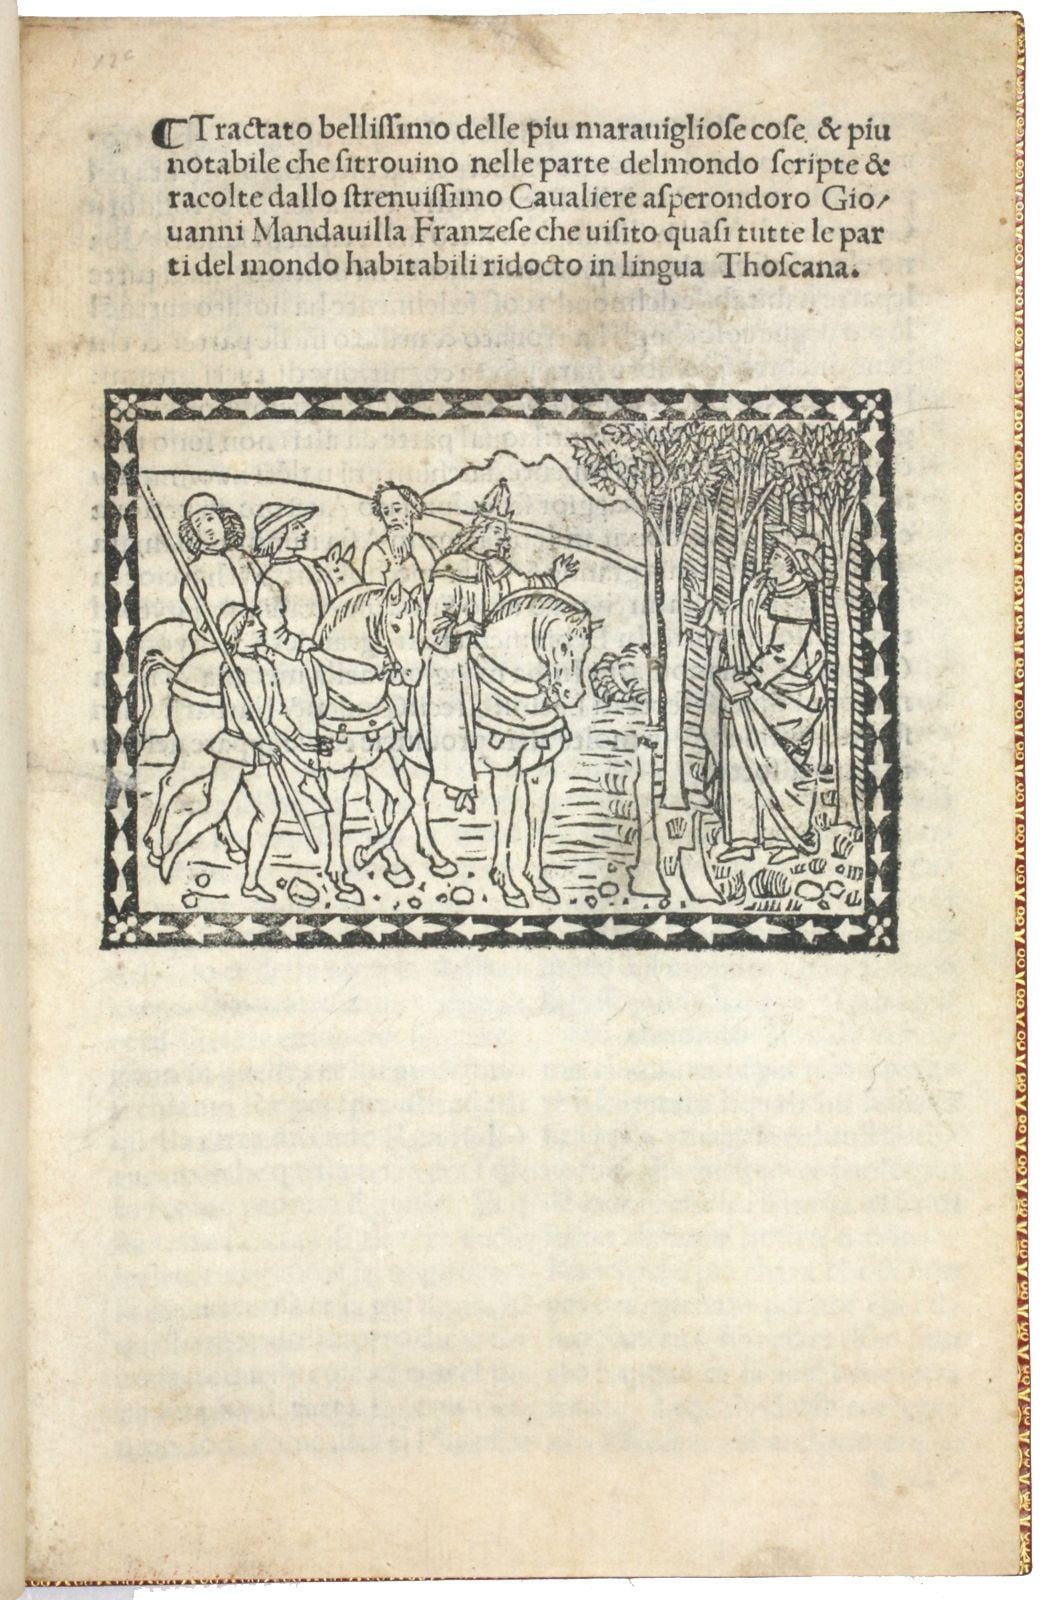 ¶Tractato bellissimo delle piu marauigliose cose. & piu
notabile che sitrouino nelle parte delmondo scripte &
racolte dallo strenuissimo Caualiere asperondoro Gio/
uanni Mandauilla Franzese che uisito quasi tutte le par
ti del mondo habitabili ridocto in lingua Thoscana.